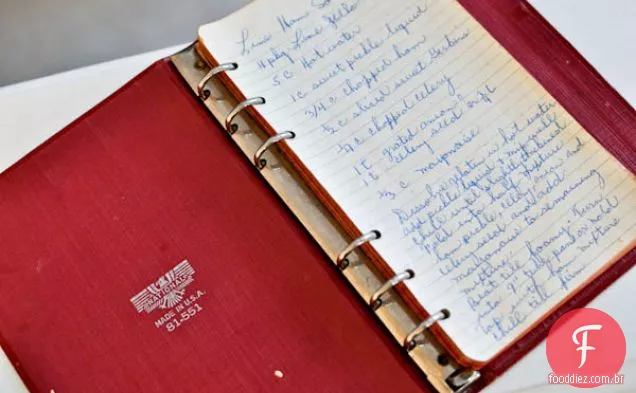 Lime Ham
4 pkg Lime Jello
5 C Hot water
1 c sweet pickle liquid
3/4 c chopped ham
1/2 c sliced sweet Gerkins
1/4 c chopped celery
1 t grated onion
1 t celery seed
2/3 c mayonaise
Dissolve gelatin in hot water
add pickle liquid &
chill until slightly thickened
Fold into half mixture
ham, pickle, celery, onion and
celery seed and add
mayonaise to remaining
mixture.
Beat till foamy. Turn
into 9" sq pan or mold
top with ham mixture
chill till firm
NATIONAL
MADE IN U.S.A.
81-551
F
fooddiez.com.br